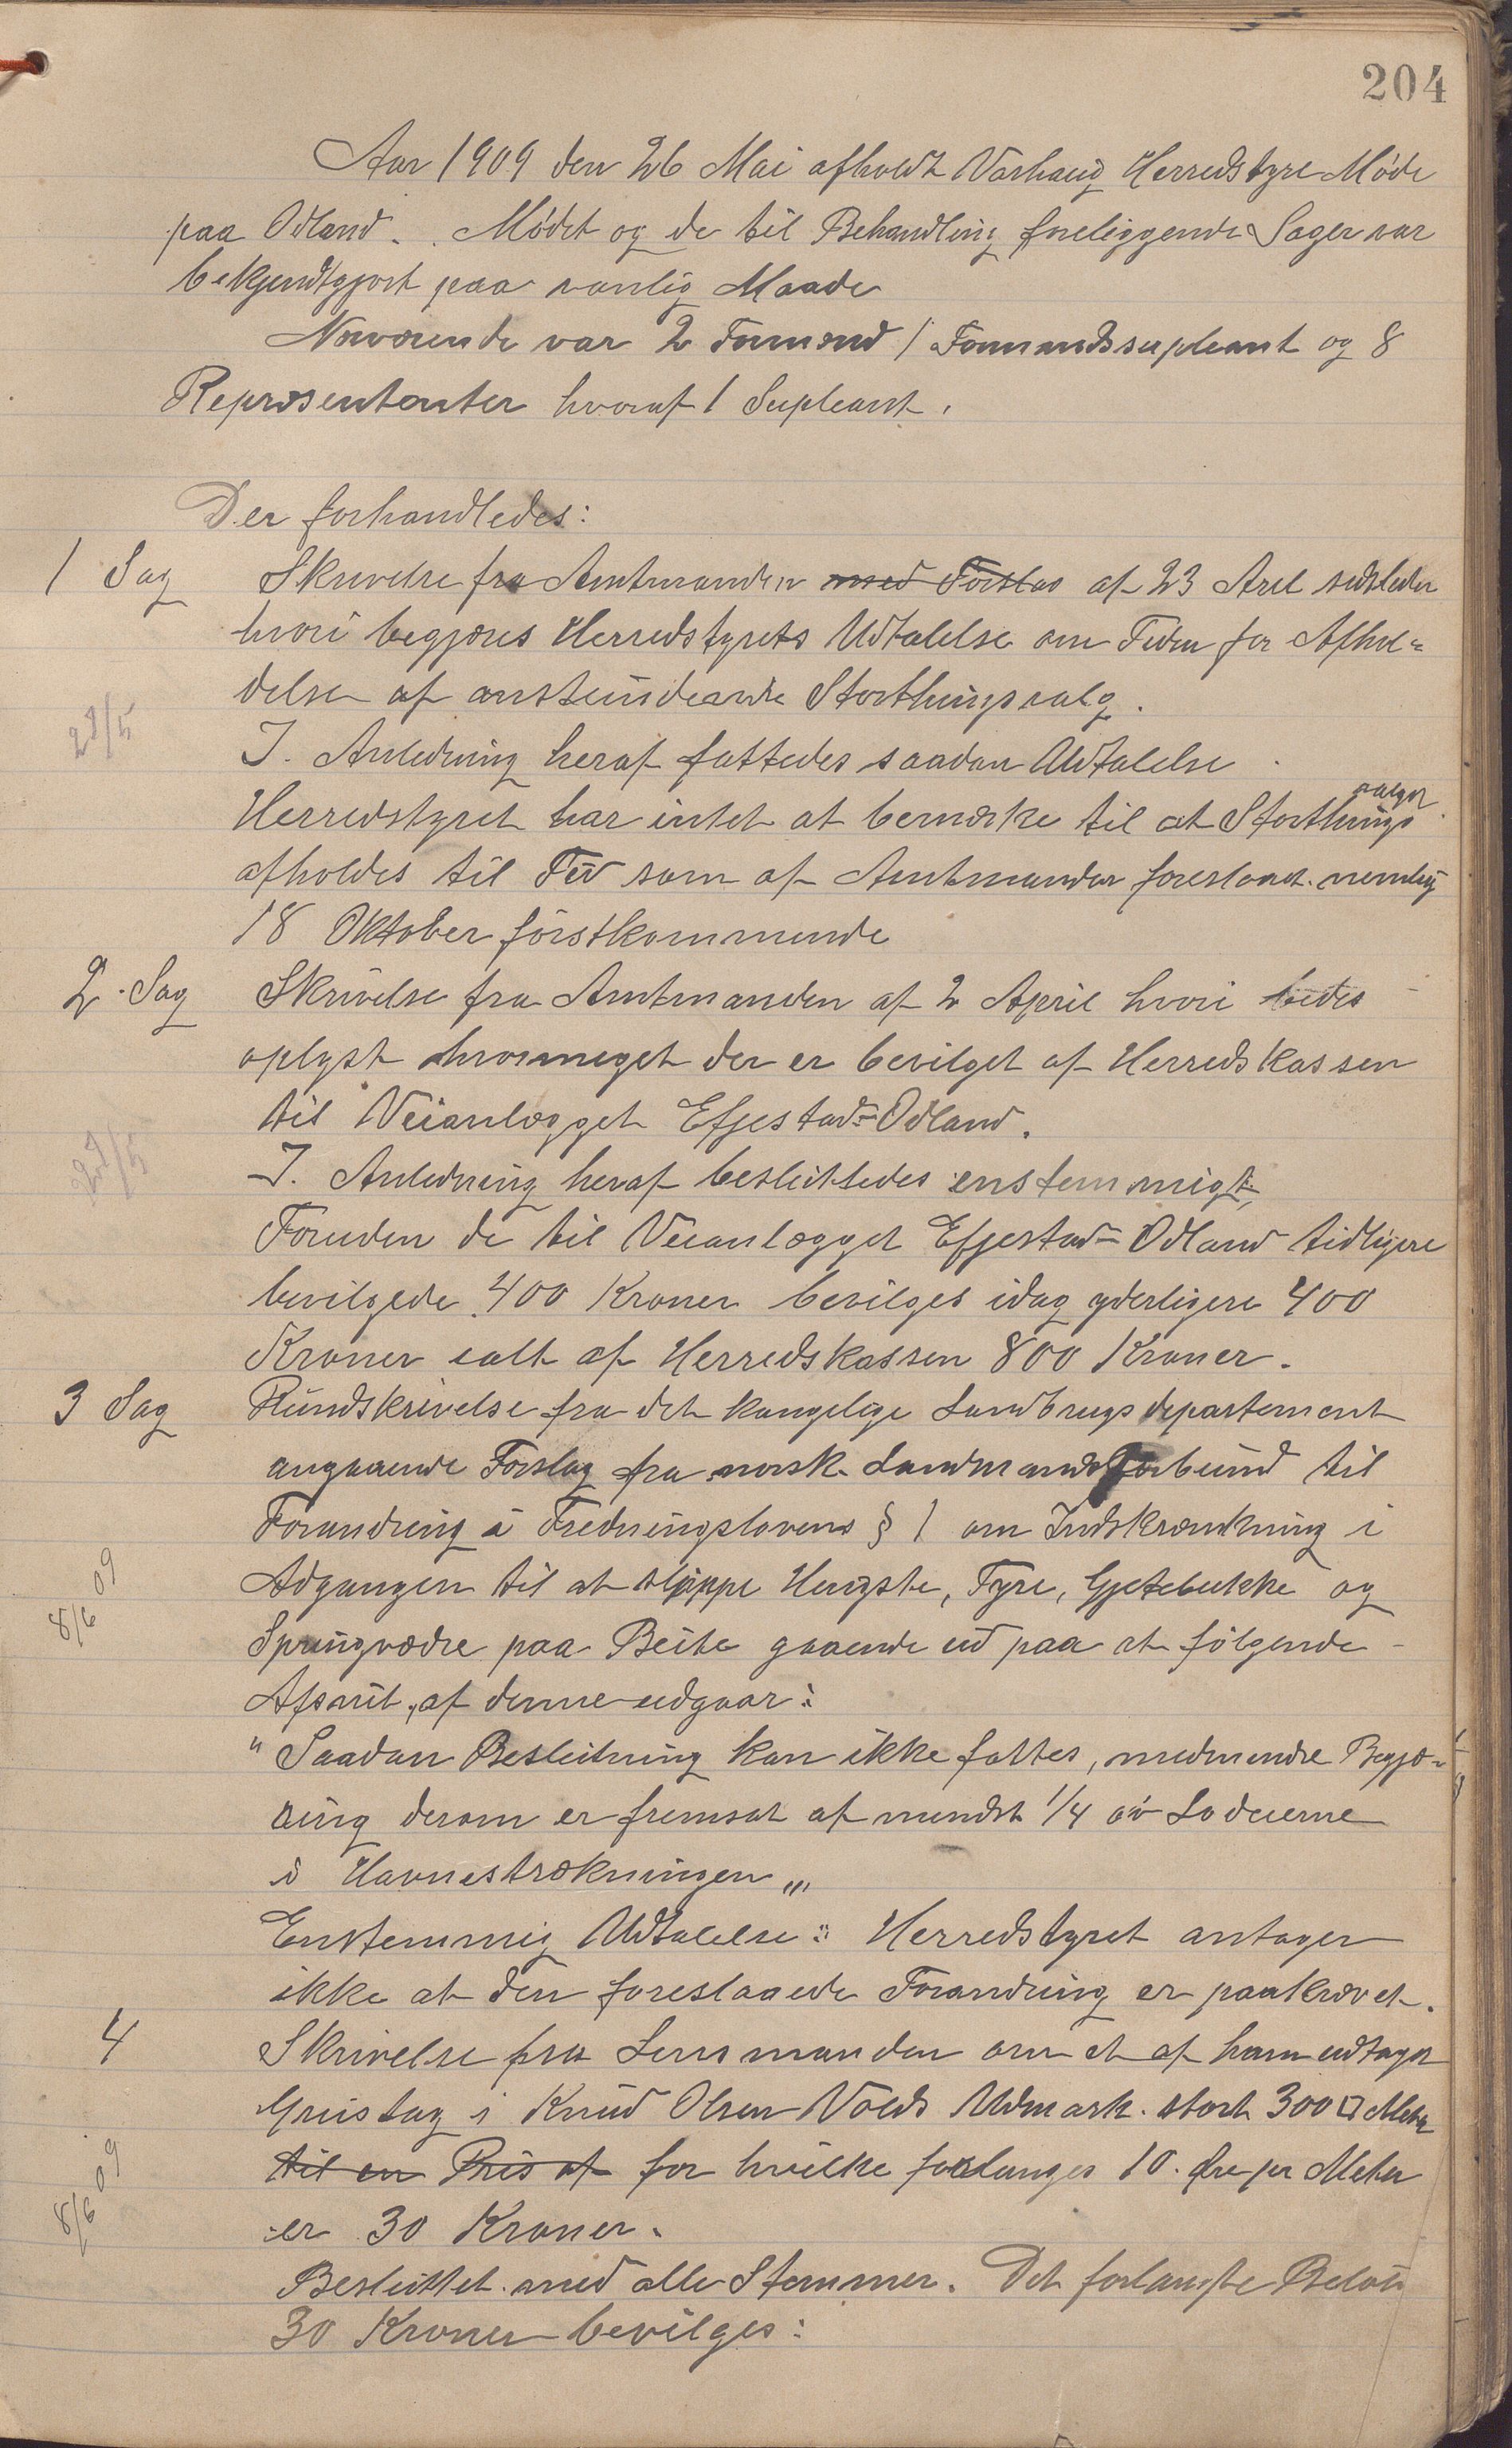 204
Aar 1909 den 26 Mai afholdt Varhaug Herredstyre Møde
paa Odland. Mødet og de til Behandling foreliggende Sager var
bekjendtgjort paa vanlig Maade
Nærværende var 2 Formænd 1 Formandssupleant og 8
Repræsentanter hvoraf 1 Supleant.
Der forhandledes:
1 Sag Skrivelse fra Amtmanden med Forslag af 23 April sidstleden
hvori begjæres Herredstyrets Udtalelse om Tiden for Afhol-
delse af anstundende Storthingsvalg.
29/5
I. Anledning heraf fattedes saadan Udtalelse
Herredstyret har intet at bemærke til at Storthingsvalget
afholdes til Tid som af Amtmanden foreslaaet nemlig
18 Oktober førstkommende
2. Sag Skrivelse fra Amtmanden af 2 April hvori bedes
oplyst hvormeget der er bevilget af Herredskassen
til Veianlægget Efjestad-Odland.
29/5
I. Anledning heraf besluttedes enstemmigt
Foruden de til Veianlægget Efjestad-Odland tidligere
bevilgede 400 Kroner bevilges idag yderligere 400
Kroner ialt af Herredskassen 800 Kroner.
3 Sag Rundskrivelse fra det kongelige Landbrugsdepartement
angaaende Forslag fra norsk Landmandsforbund til
Forandring i Fredningslovens § 1 om Indskrænkning i
Adgangen til at slippe Hingste, Tyre, Gjetebukke og
8/6 09
Springvædre paa Beite gaaende ud paa at følgende
Afsnit af denne udgaar:
"Saadan Beslutning kan ikke fattes, medmindre Begjæ-
ring derom er fremsat af mindst 1/4 av Lodeierne
i Havnestrækningen"
Enstemmig Udtalelse: Herredstyret antager
ikke at den foreslaaede Forandring er paakrævet.
4 Skrivelse fra Lensmanden om et af ham udtaget
Grustag i Knud Olsen Volds Udmark stort 300 □ Meter
til en Pris af for hvilke forlanges 10 Øre pr Meter
8/6 09
er 30 Kroner.
Besluttet med alle Stemmer. Det forlangte Beløb
30 Kroner bevilges: